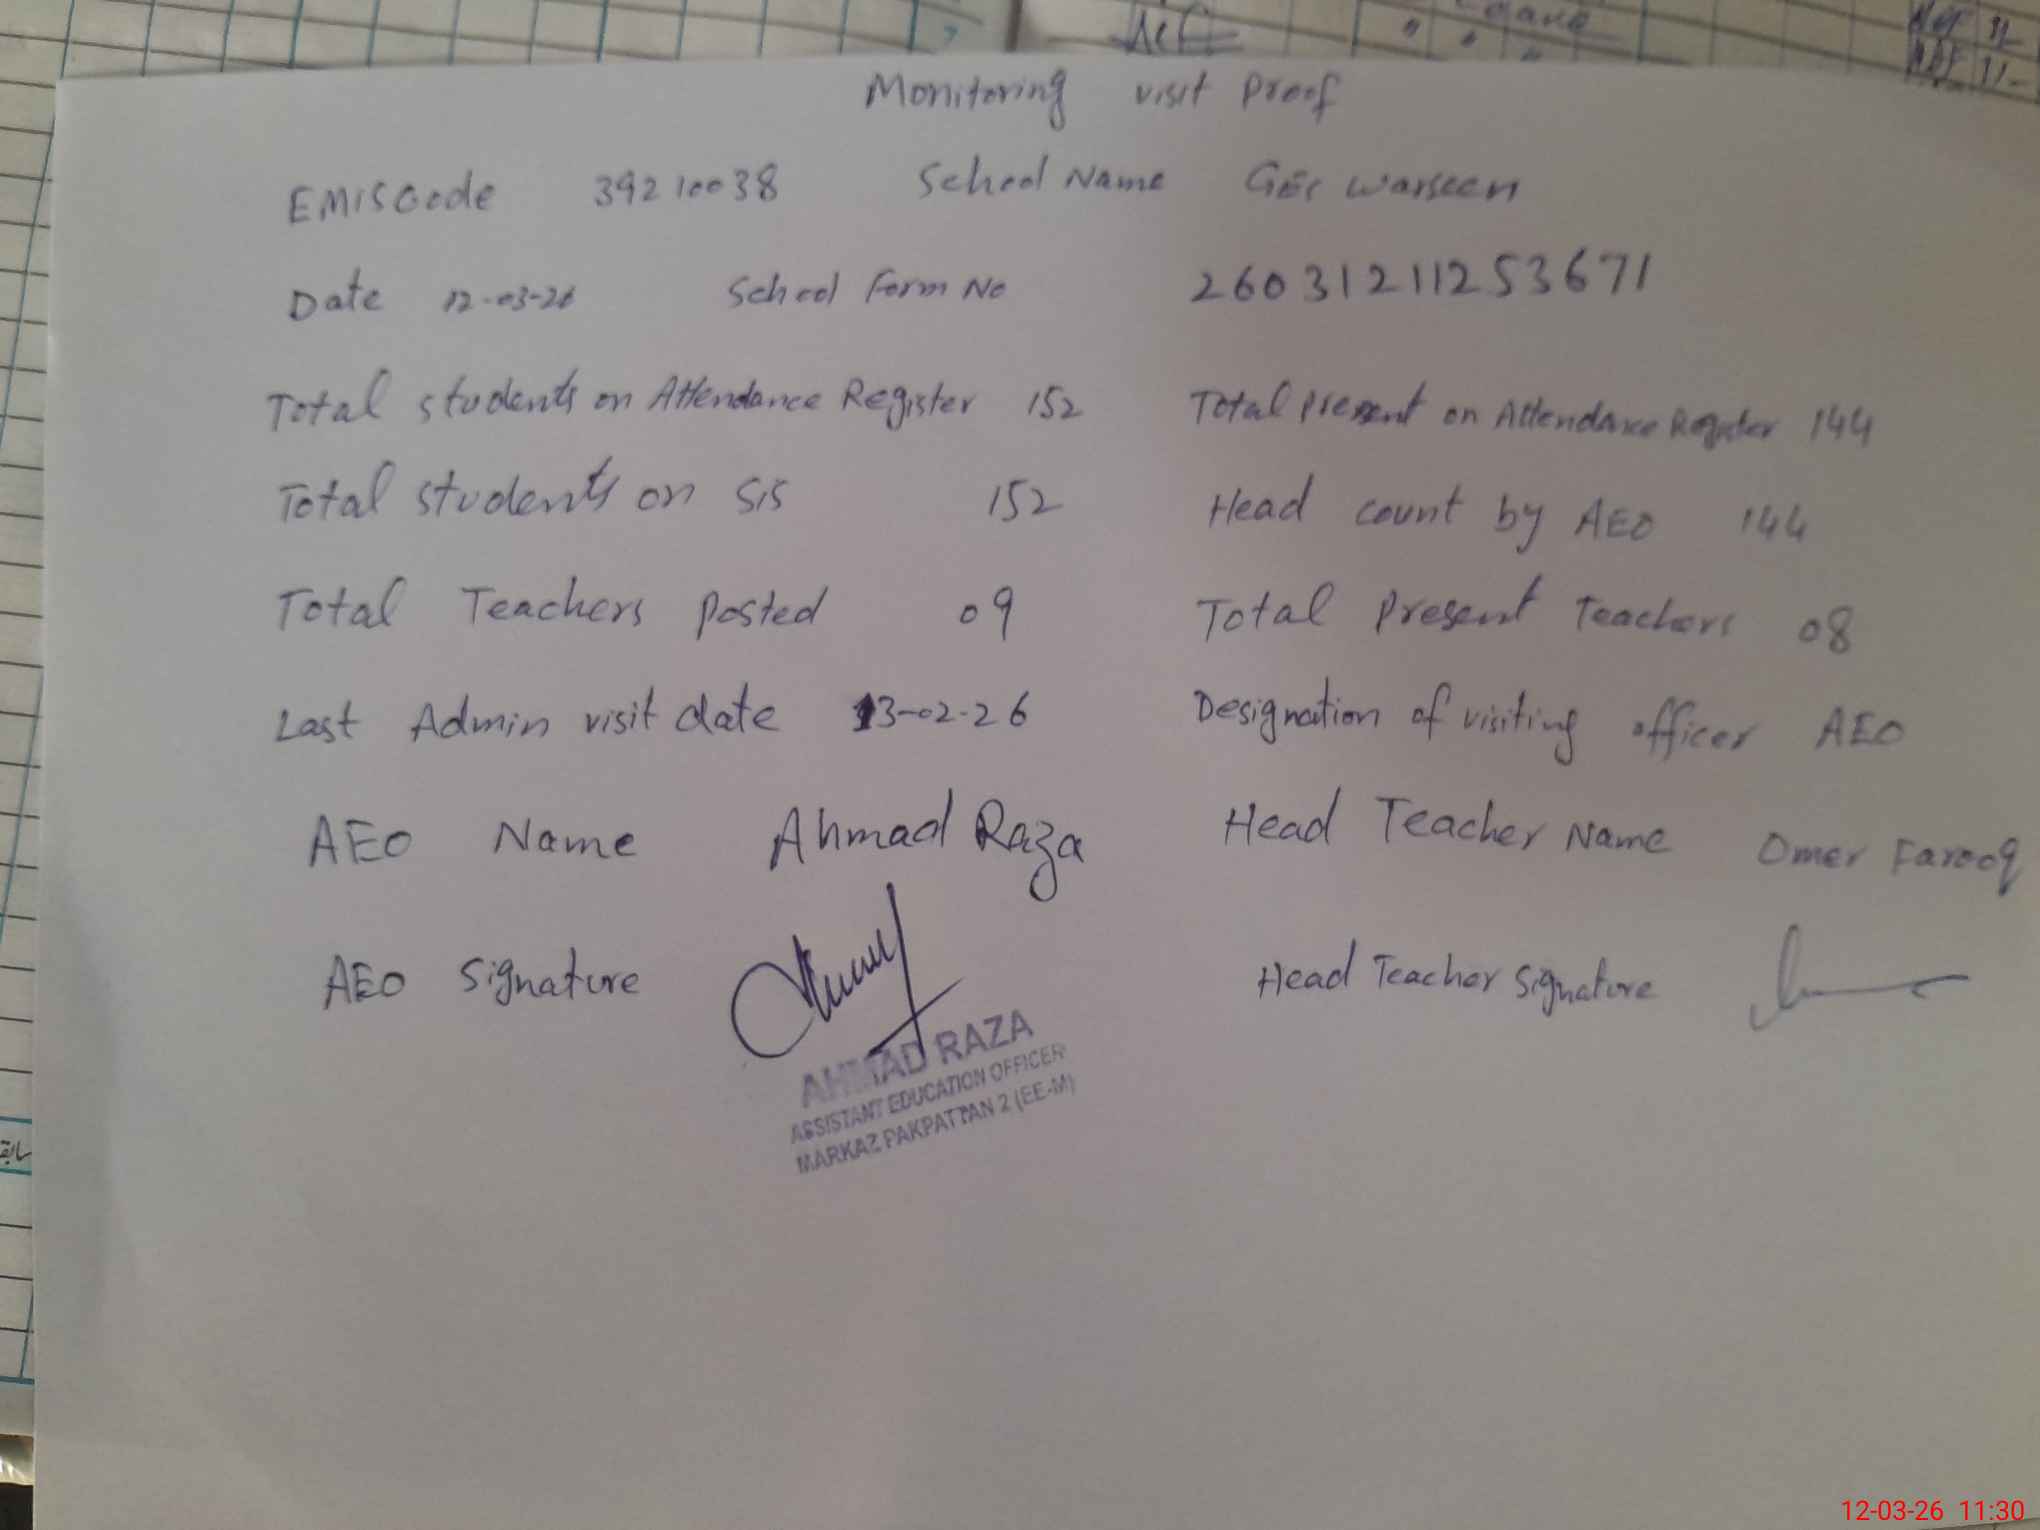 Monitoring visit Proof
EMIS Code 39210038 School Name GES Warseen
Date 12-03-26 School Form No 26031211253671
Total students on Attendance Register 152 Total Present on Attendance Register 144
Total students on SIS 152 Head count by AEO 144
Total Teachers Posted 09 Total Present Teachers 08
Last Admin visit date 13-02-26 Designation of visiting officer AEO
AEO Name Ahmad Raza Head Teacher Name Omer Farooq
AEO Signature Head Teacher Signature
AHMAD RAZA
ASSISTANT EDUCATION OFFICER
MARKAZ PAKPATTAN 2 (EE-M)
12-03-26 11:30